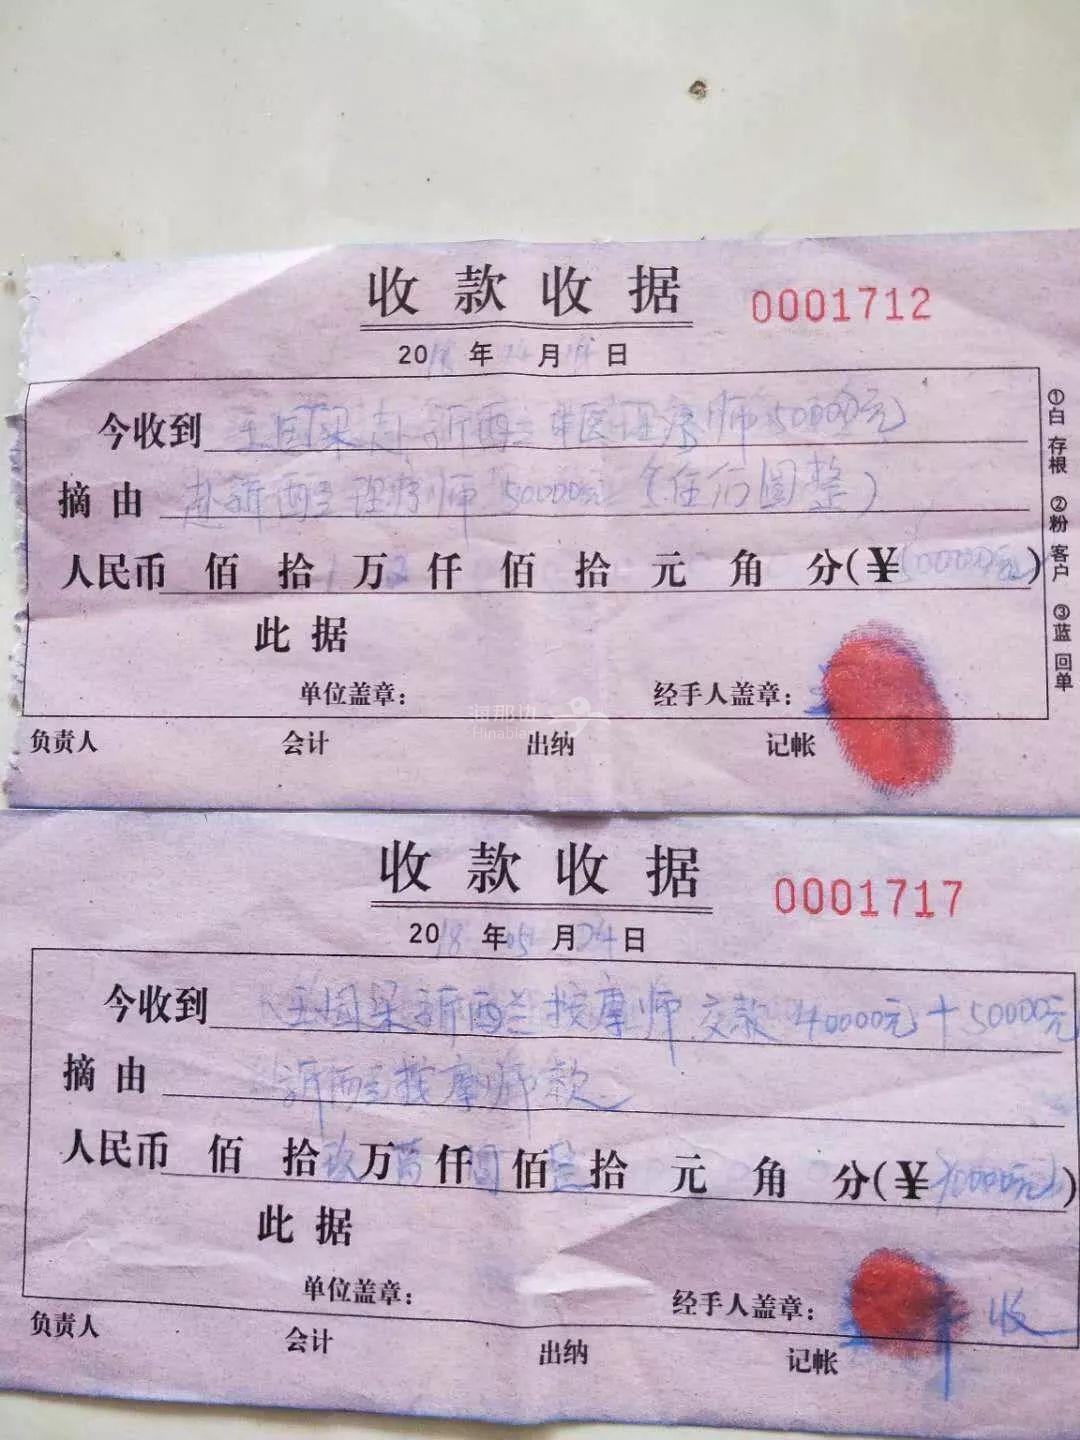 收款收据
0001712
20 年 月 日
今收到 王国梁赴新西兰中医理疗师50000元
摘由 赴新西兰理疗师50000元(伍万圆整)
人民币 佰 拾 万 仟 佰 拾 元 角 分(¥50000元)
此据
单位盖章: 经手人盖章:
负责人 会计 出纳 记帐
①白 存根 ②粉 客户 ③蓝 回单
海那边
Hinabian
收款收据
0001717
2018年05月24日
今收到 王国梁新西兰按摩师交款40000元+50000元
摘由 新西兰按摩师款
人民币 佰 拾玖万 仟 佰 拾 元 角 分(¥90000元)
此据
单位盖章: 经手人盖章: 收
负责人 会计 出纳 记帐